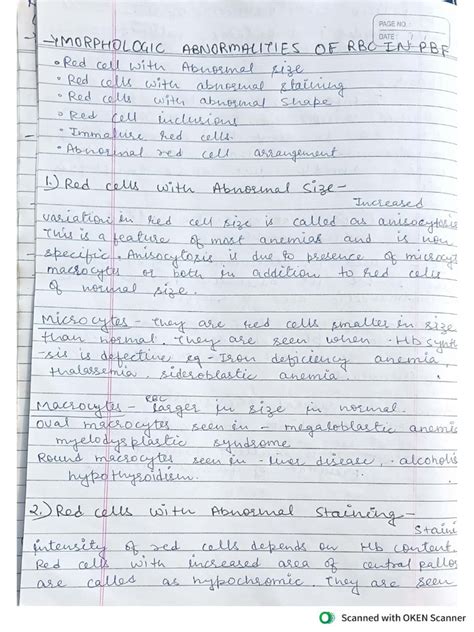 PAGE NO.:
DATE: / /
→ MORPHOLOGIC ABNORMALITIES OF RBC IN PBF
• Red cell with Abnormal size
• Red cells with abnormal staining
• Red cells with abnormal shape
• Red cell inclusions
• Immature red cells.
• Abnormal red cell arrangement
1.) Red cells with Abnormal Size -
Increased
variation in red cell size is called as anisocytosis
This is a feature of most anemias and is non
specific. Anisocytosis is due to presence of microcyt
macrocytes or both in addition to red cells
of normal size.
Microcytes - They are red cells smaller in size
than normal. They are seen when Hb synth
-sis is defective eg - Iron deficiency anemia,
thalassemia, sideroblastic anemia.
Macrocytes - RBC larger in size in normal.
oval macrocytes seen in - megaloblastic anemia
myelodysplastic syndrome
Round macrocytes seen in - liver disease, alcoholis
hypothyroidism.
2.) Red cells with Abnormal Staining -
Staini
intensity of red cells depends on Hb content.
Red cells with increased area of central pallor
are called as hypochromic. They are seen
Scanned with OKEN Scanner